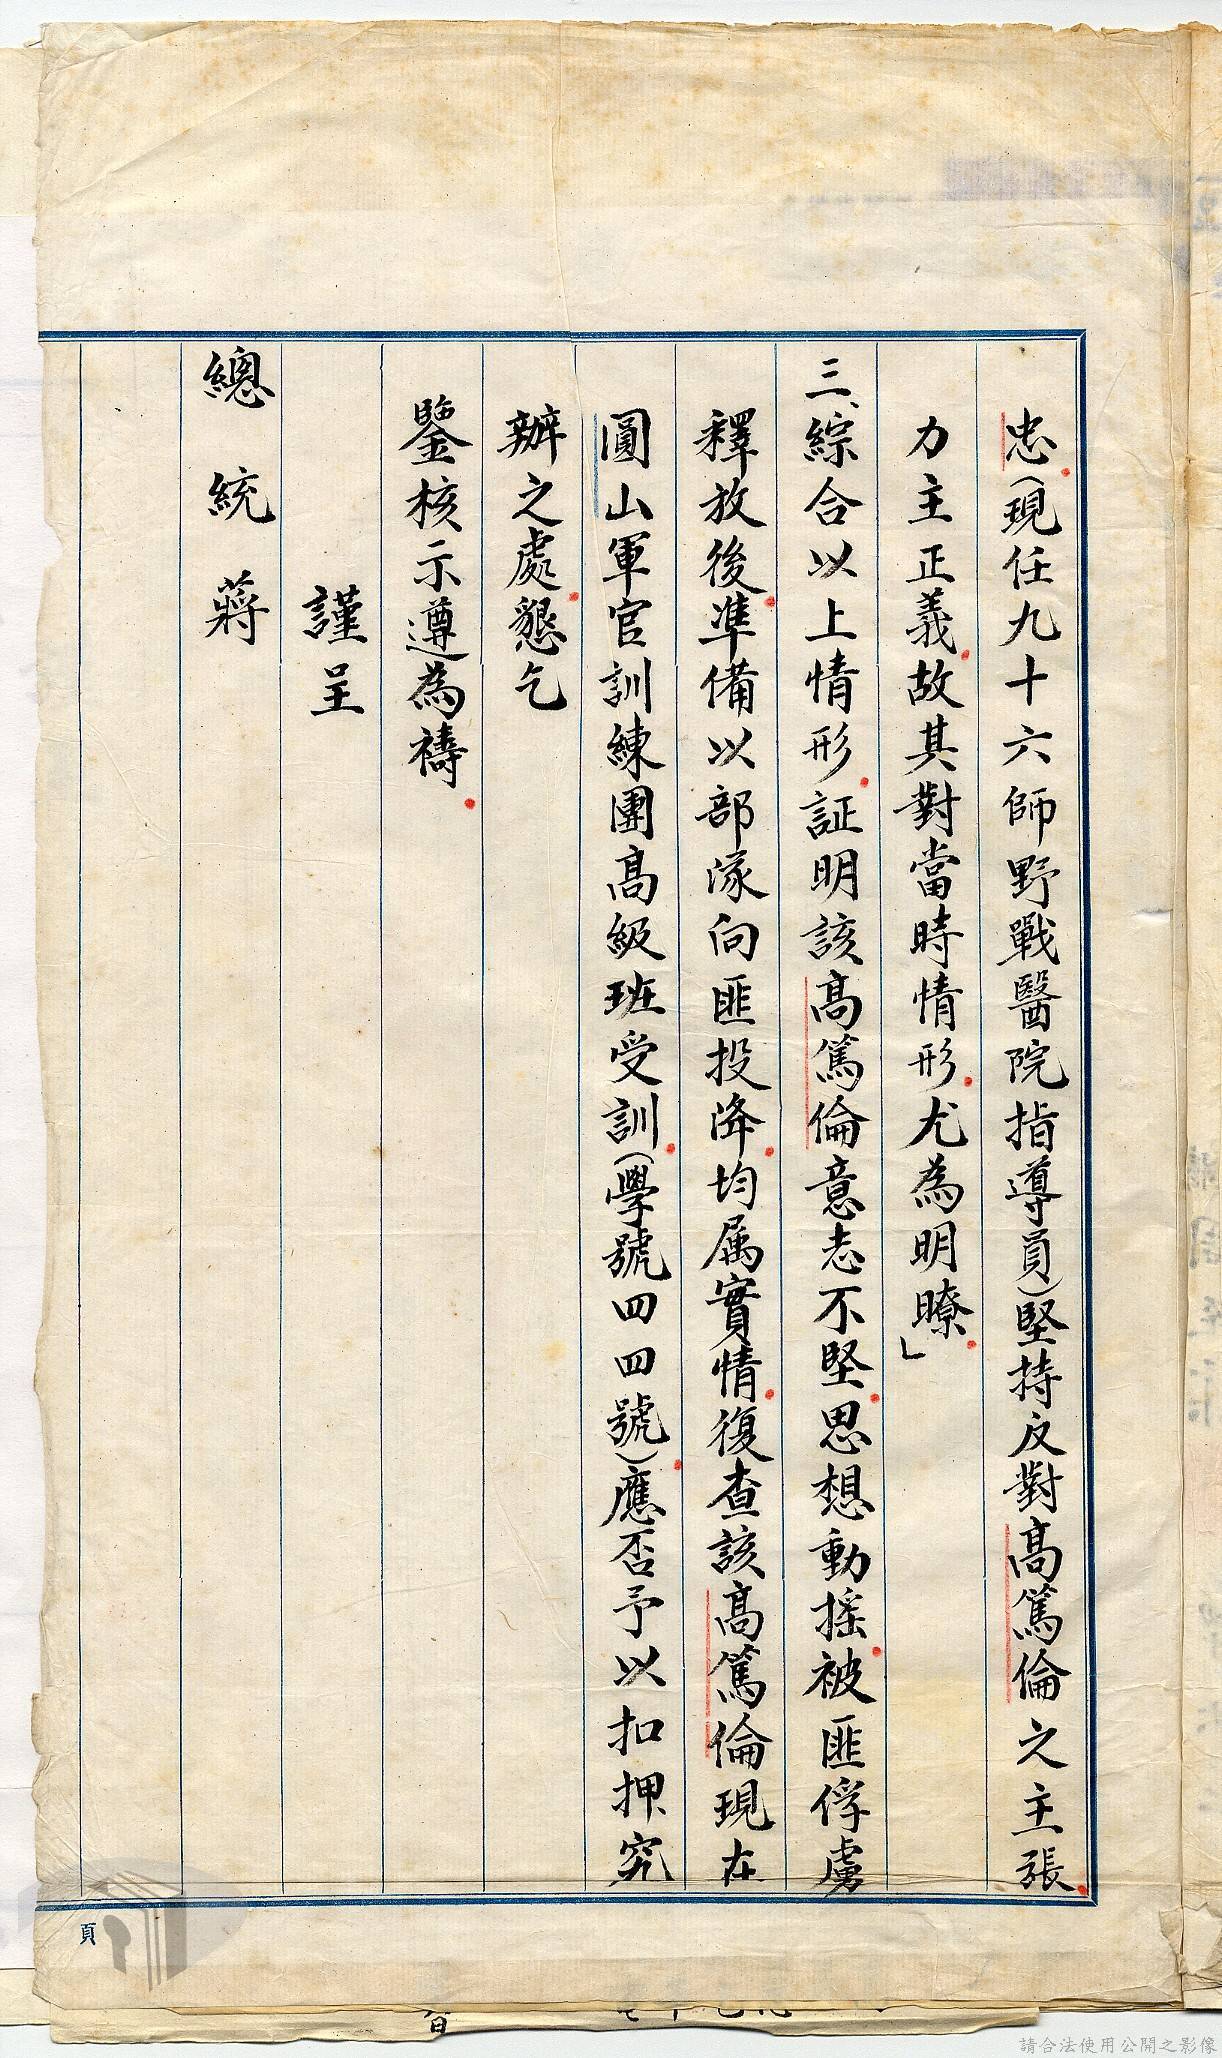 忠（現任九十六師野戰醫院指導員）堅持反對高篤倫之主張
力主正義故其對當時情形尤為明瞭」
三、綜合以上情形証明該高篤倫意志不堅思想動搖被匪俘虜
釋放後準備以部隊向匪投降均属實情復查該高篤倫現在
圓山軍官訓練團高級班受訓（學號四四號）應否予以扣押究
辦之處懇乞
鑒核示遵為禱
謹呈
總統 蔣
頁
請合法使用公開之影像